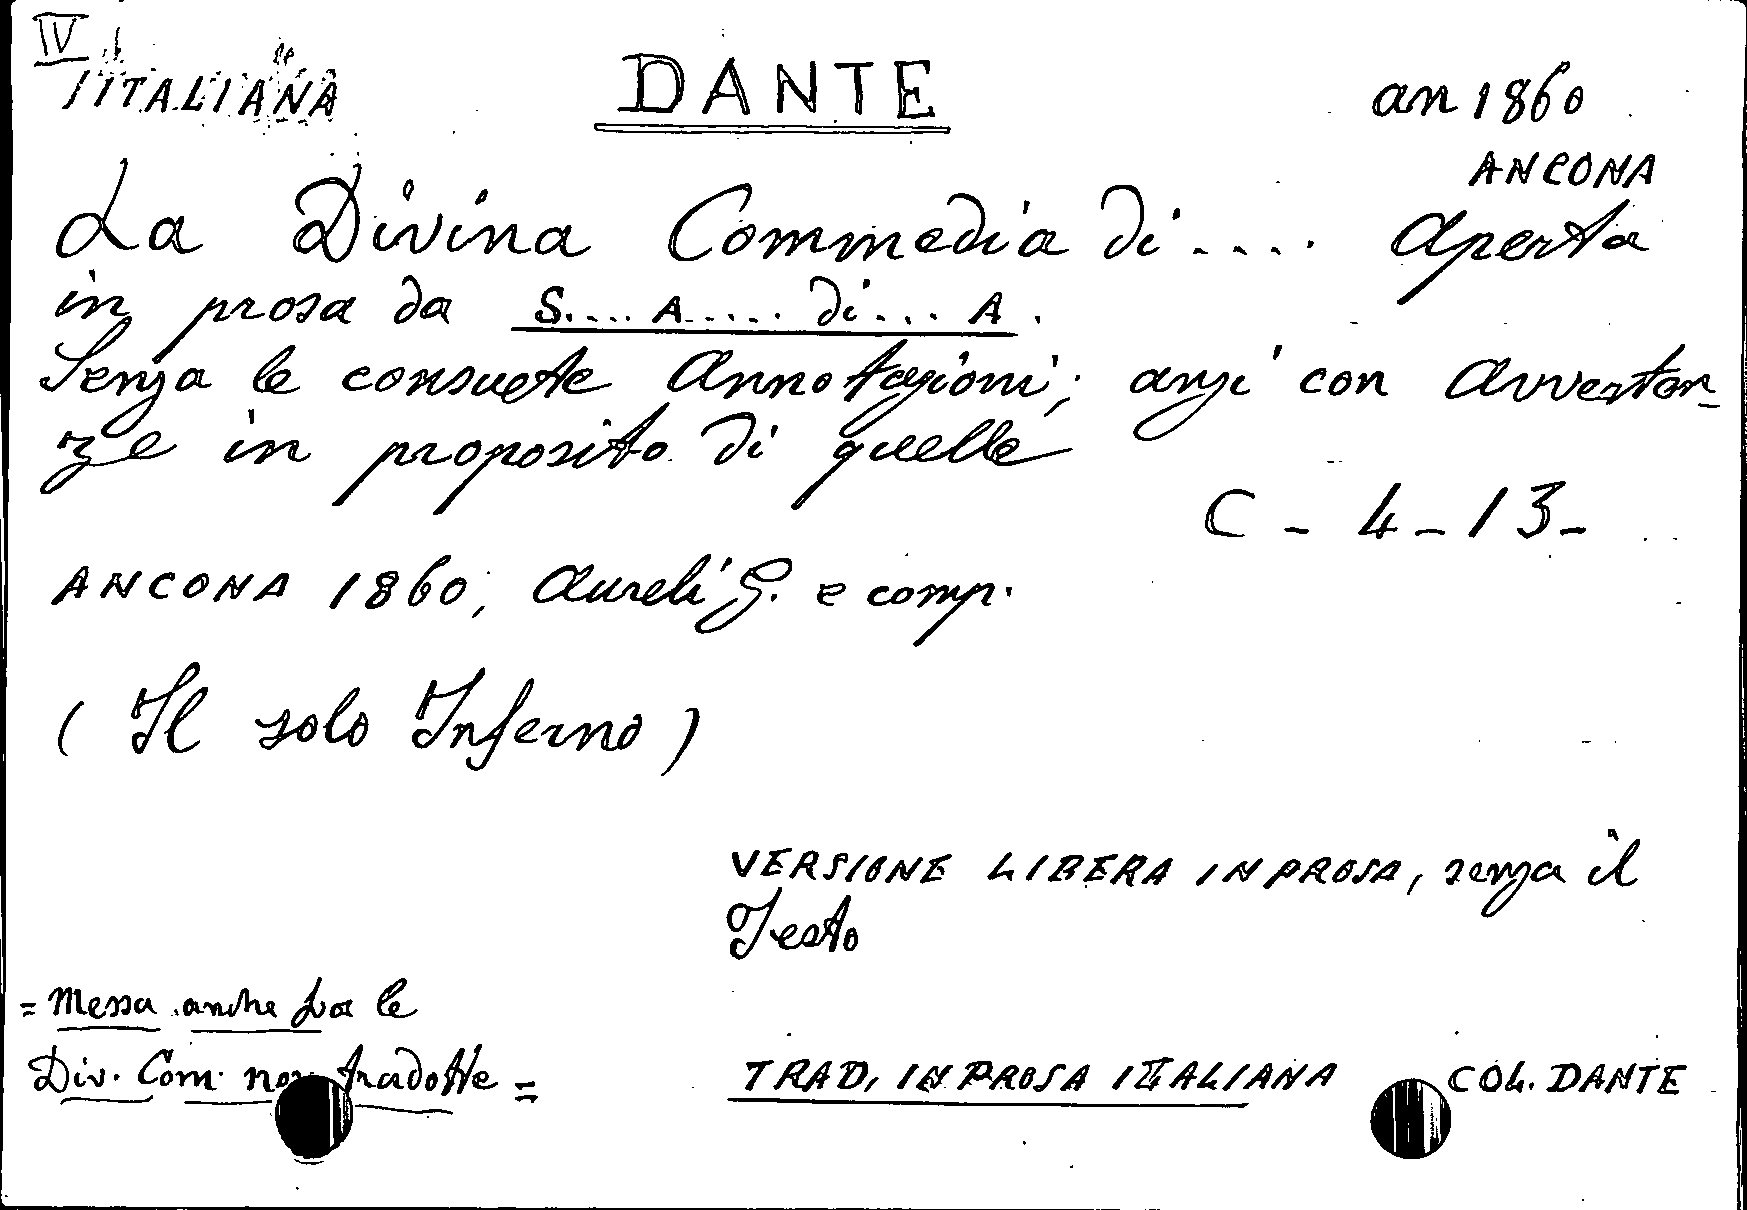 IV
ITALIANA
DANTE
an 1860
ANCONA
La Divina Commedia di .... aperta
in prosa da S.... A..... di... A.
Senza le consuete Annotazioni; anzi con Avverten-
ze in proposito di quelle
C - 4 - 13 -
ANCONA 1860, Aureli G. e comp.
( Il solo Inferno )
VERSIONE LIBERA IN PROSA, senza il
Testo
= Messa anche fra le
Div. Com. non tradotte =
TRAD. IN PROSA ITALIANA
COL. DANTE